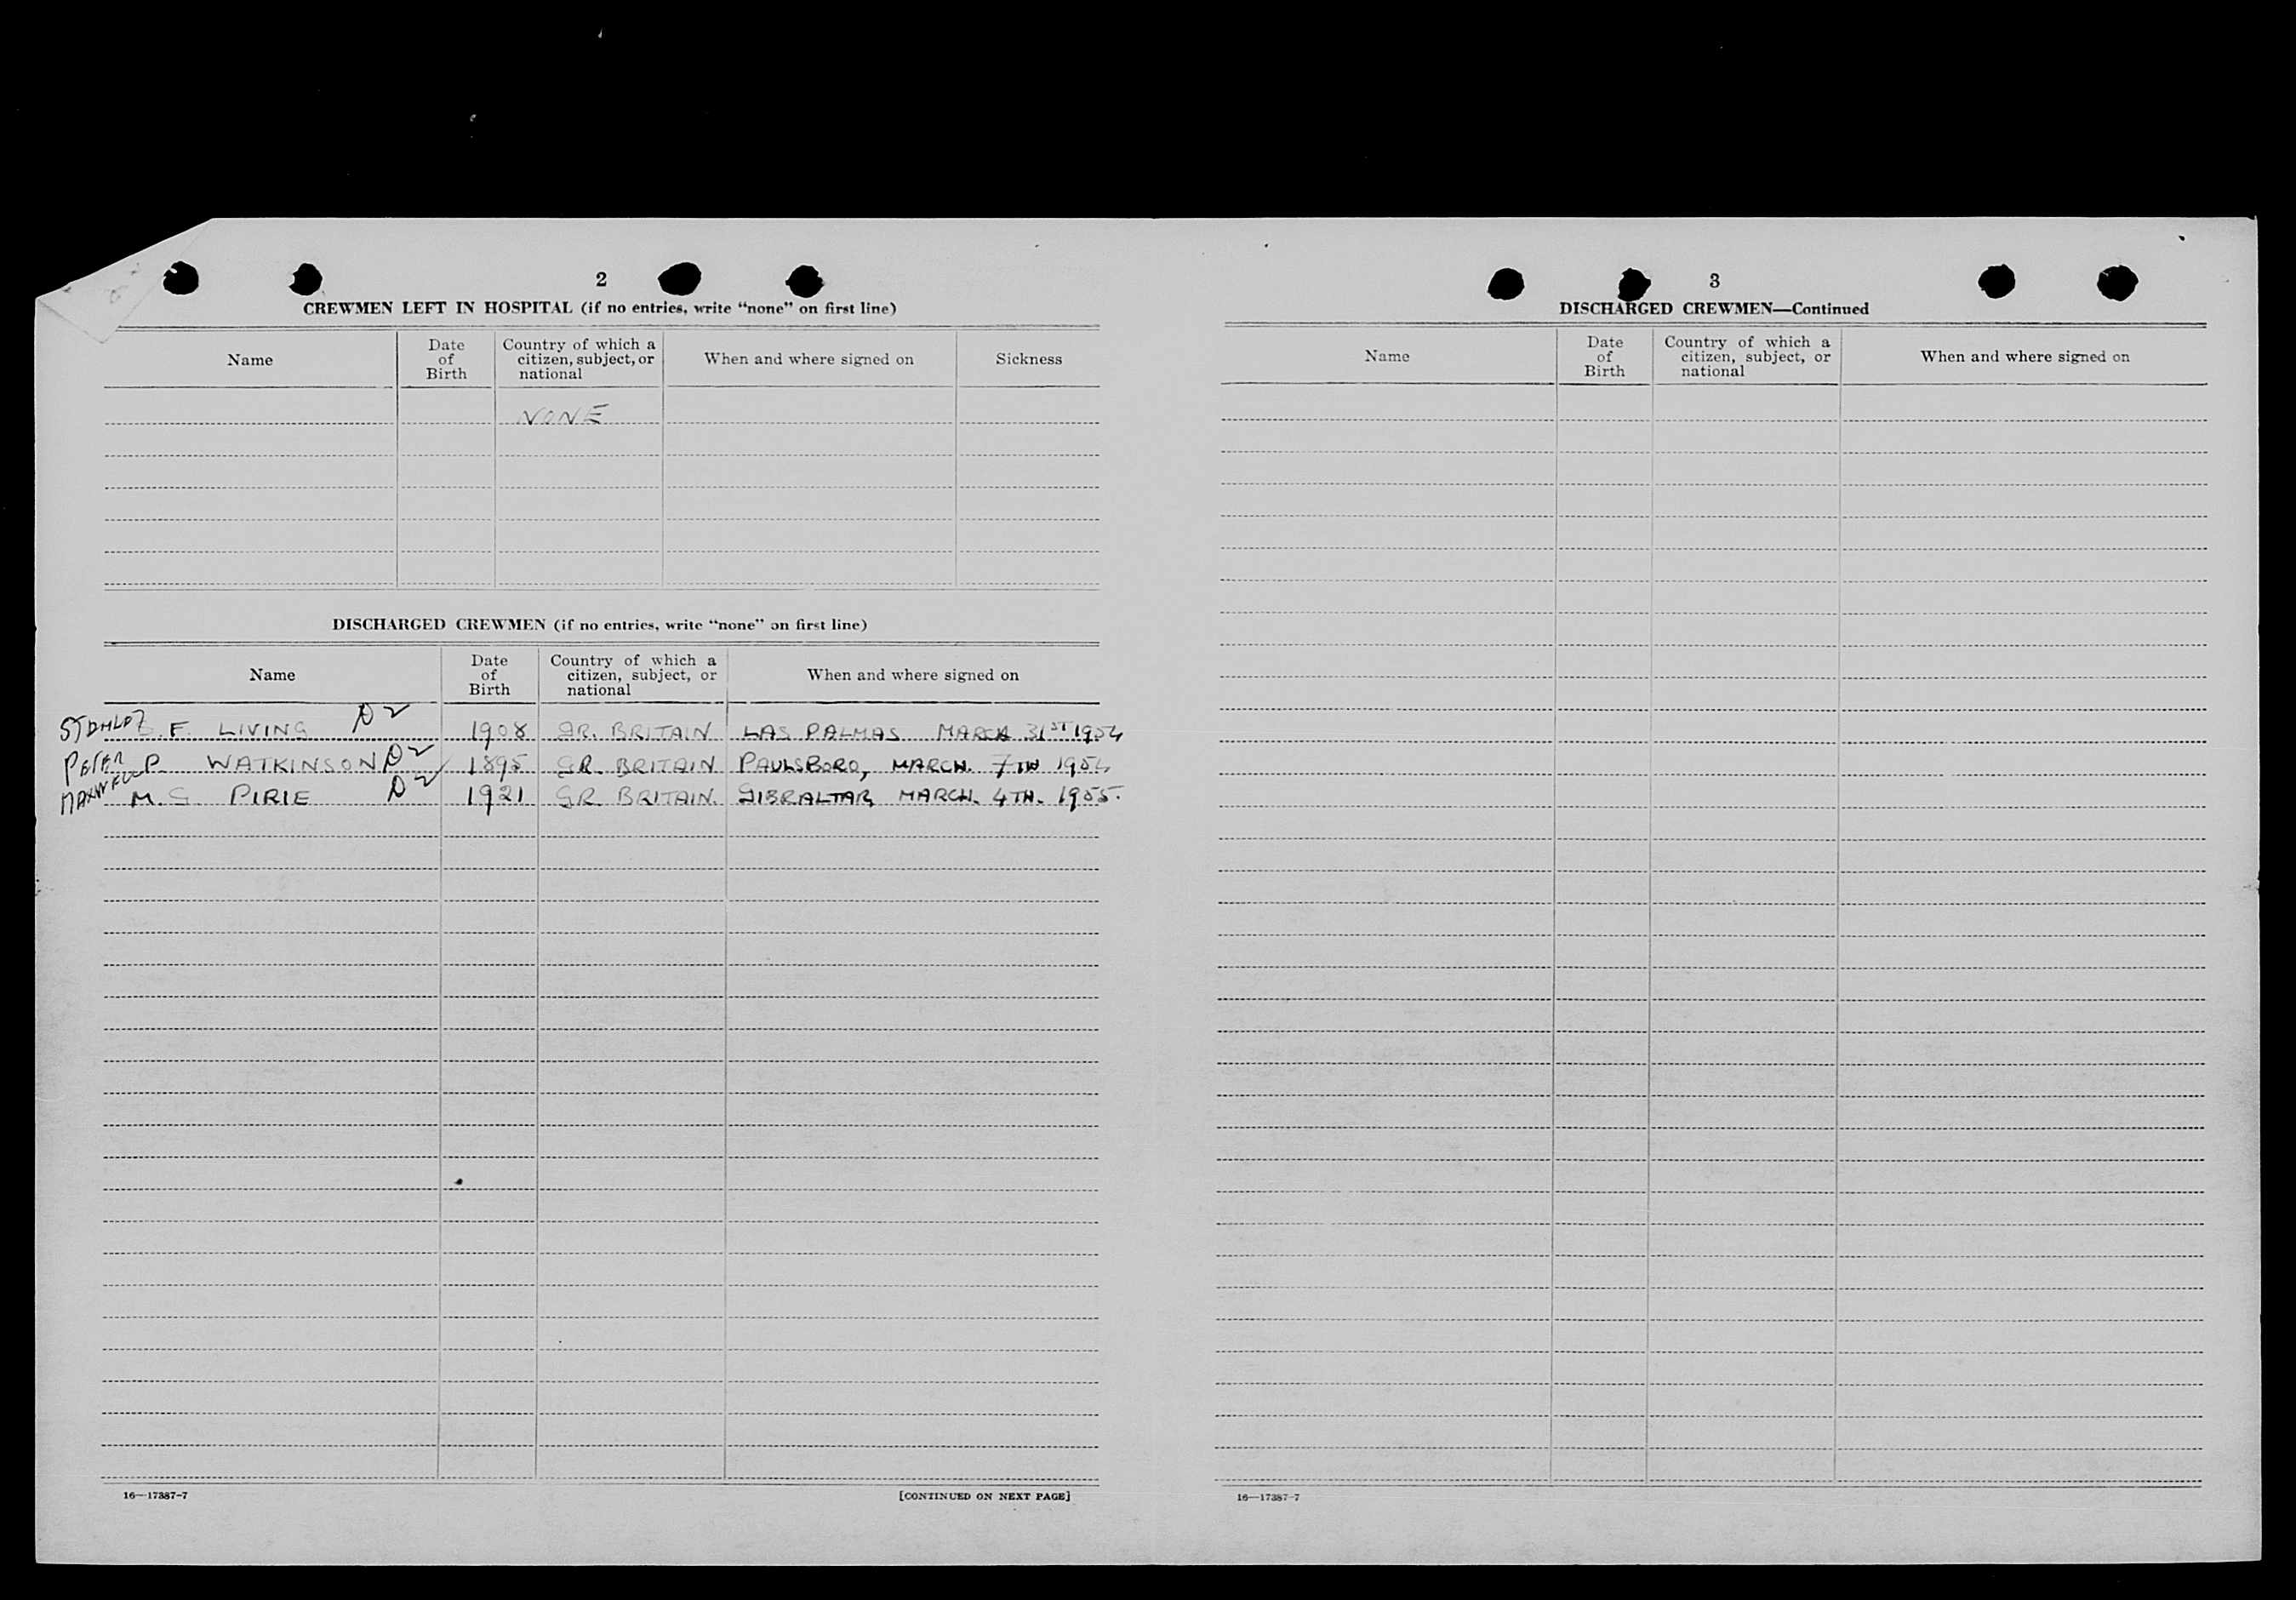 2
CREWMEN LEFT IN HOSPITAL (if no entries, write “none” on first line)
Name
Date of Birth
Country of which a citizen, subject, or national
When and where signed on
Sickness
NONE
DISCHARGED CREWMEN (if no entries, write “none” on first line)
Name
Date of Birth
Country of which a citizen, subject, or national
When and where signed on
F. LIVING D2 1908 GR. BRITAIN LAS PALMAS MARCH 31ST 1954
PETER P. WATKINSON D2 1895 GR. BRITAIN PAULSBORO, MARCH. 7TH 195
M. G. PIRIE D2 1921 GR. BRITAIN. GIBRALTAR, MARCH. 4TH. 1955.
16—17387-7
[CONTINUED ON NEXT PAGE]
3
DISCHARGED CREWMEN—Continued
Name
Date of Birth
Country of which a citizen, subject, or national
When and where signed on
16—17387-7